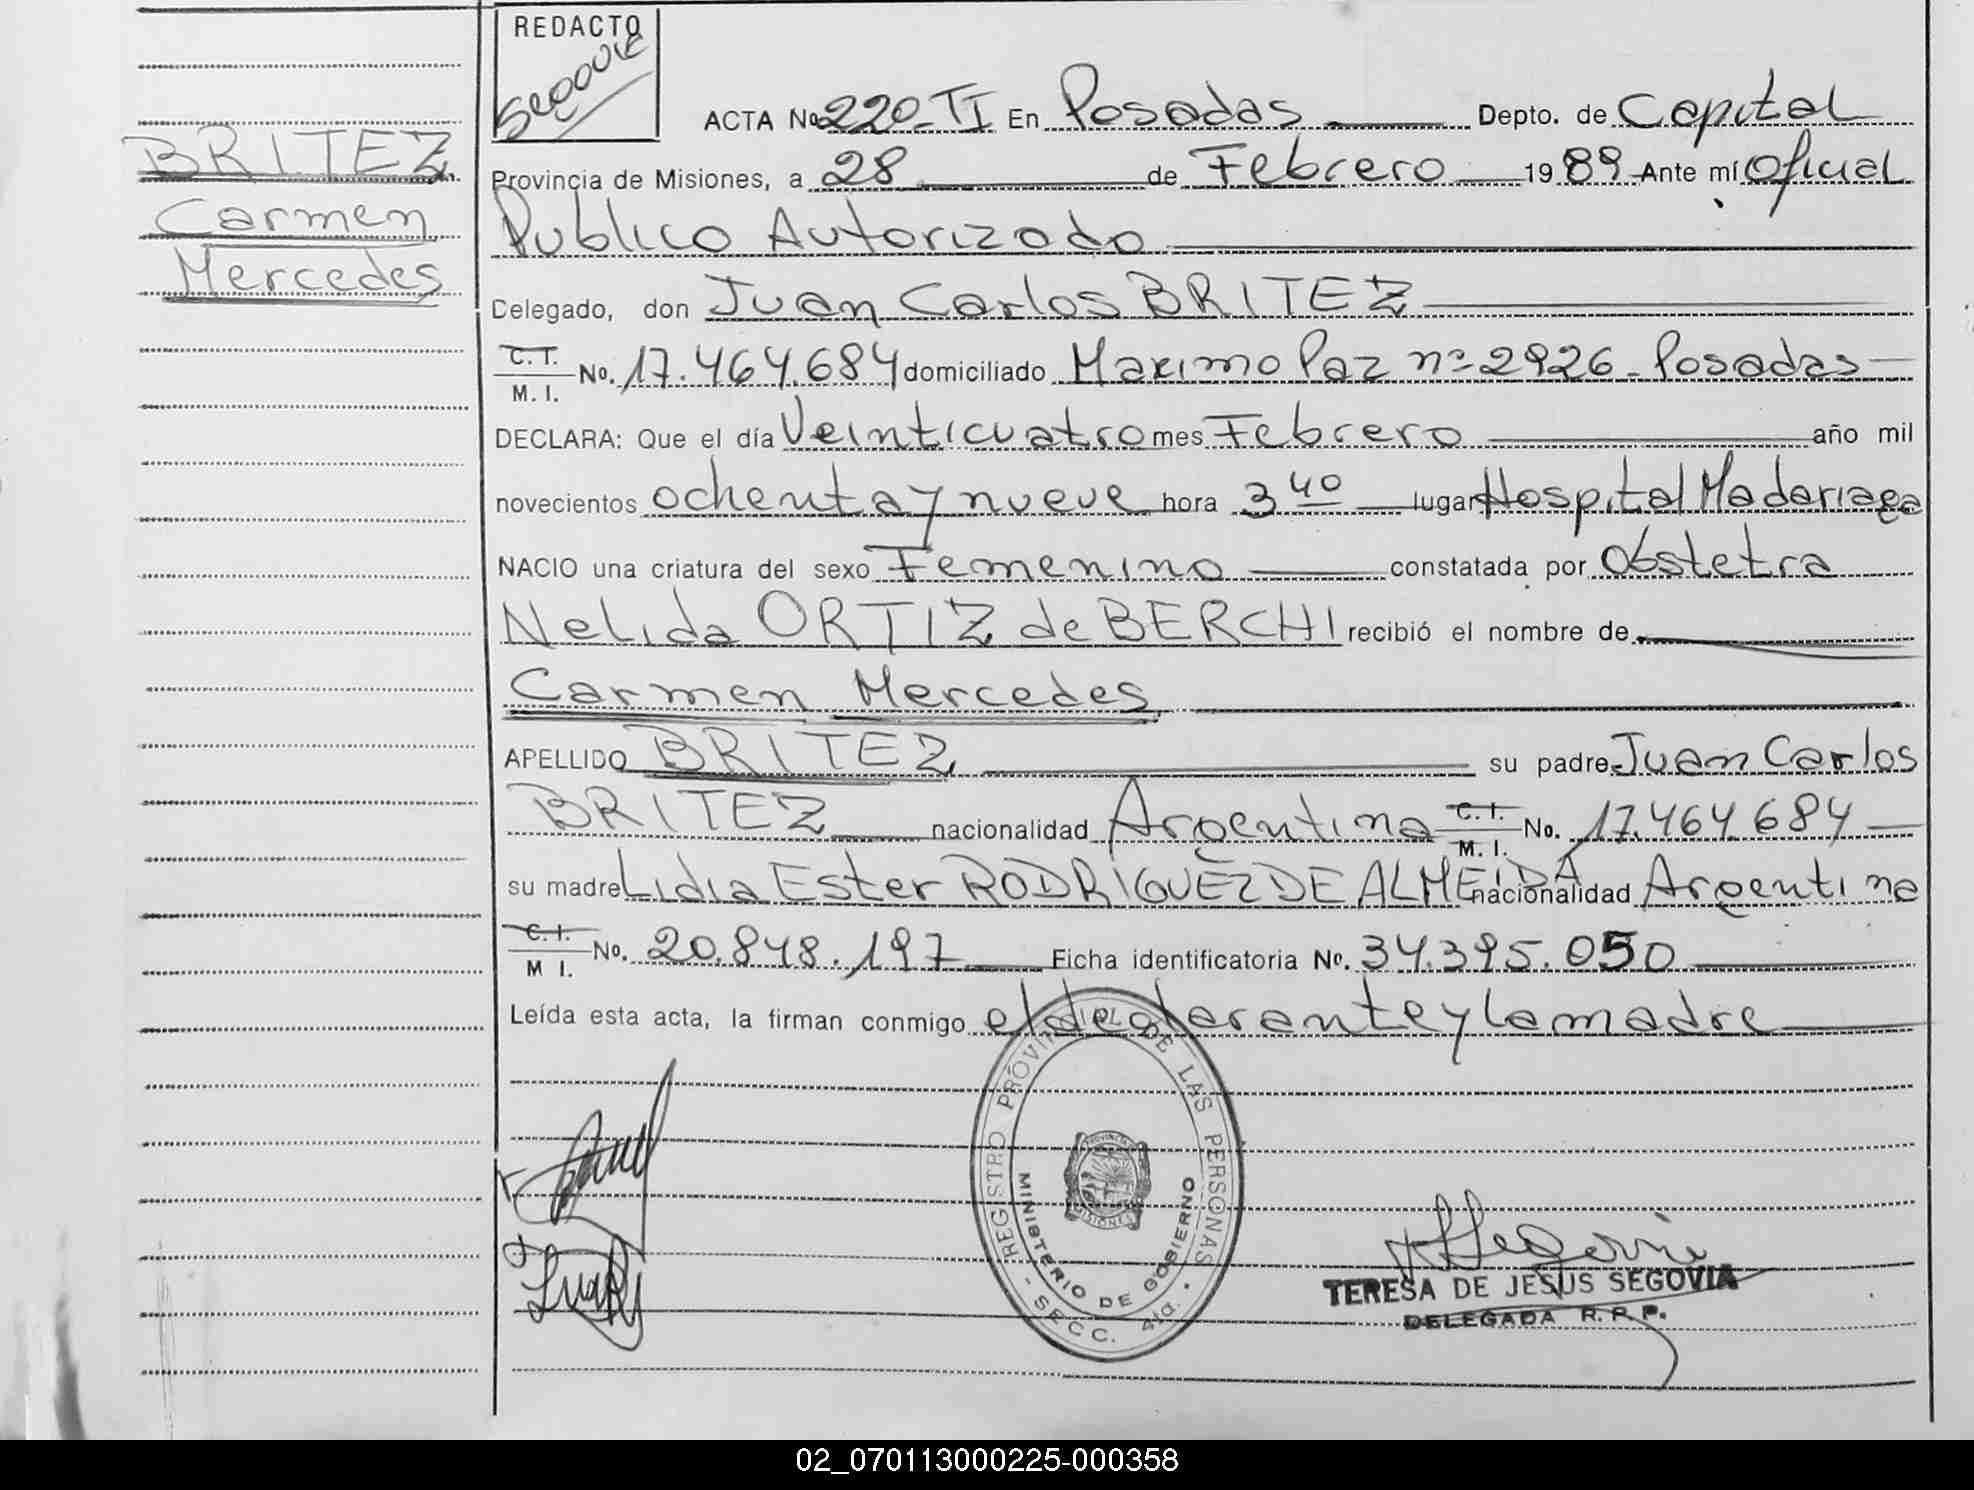 REDACTO
BRITEZ
Carmen
Mercedes
ACTA Nº 220-TI En Posadas Depto. de Capital
Provincia de Misiones, a 28 de Febrero 1989 Ante mí Oficial
Publico Autorizado
Delegado, don Juan Carlos BRITEZ
C.I. M. I. No. 17.464.684 domiciliado Maximo Paz nº 2926 - Posadas
DECLARA: Que el día Veinticuatro mes Febrero año mil
novecientos ochenta y nueve hora 3 40 lugar Hospital Madariaga
NACIO una criatura del sexo Femenino constatada por Obstetra
Nelida ORTIZ de BERCHI recibió el nombre de
Carmen Mercedes
APELLIDO BRITEZ su padre Juan Carlos
BRITEZ nacionalidad Argentina C.I. M. I. No. 17.464.684
su madre Lidia Ester RODRIGUEZ DE ALMEIDA nacionalidad Argentina
C.I. M I. No. 20.848.197 Ficha identificatoria No. 34.395.050
Leída esta acta, la firman conmigo el declarante y la madre
REGISTRO PROVINCIAL DE LAS PERSONAS
MINISTERIO DE GOBIERNO
- SECC. 4ta. -
TERESA DE JESUS SEGOVIA
DELEGADA R. P. P.
02_070113000225-000358